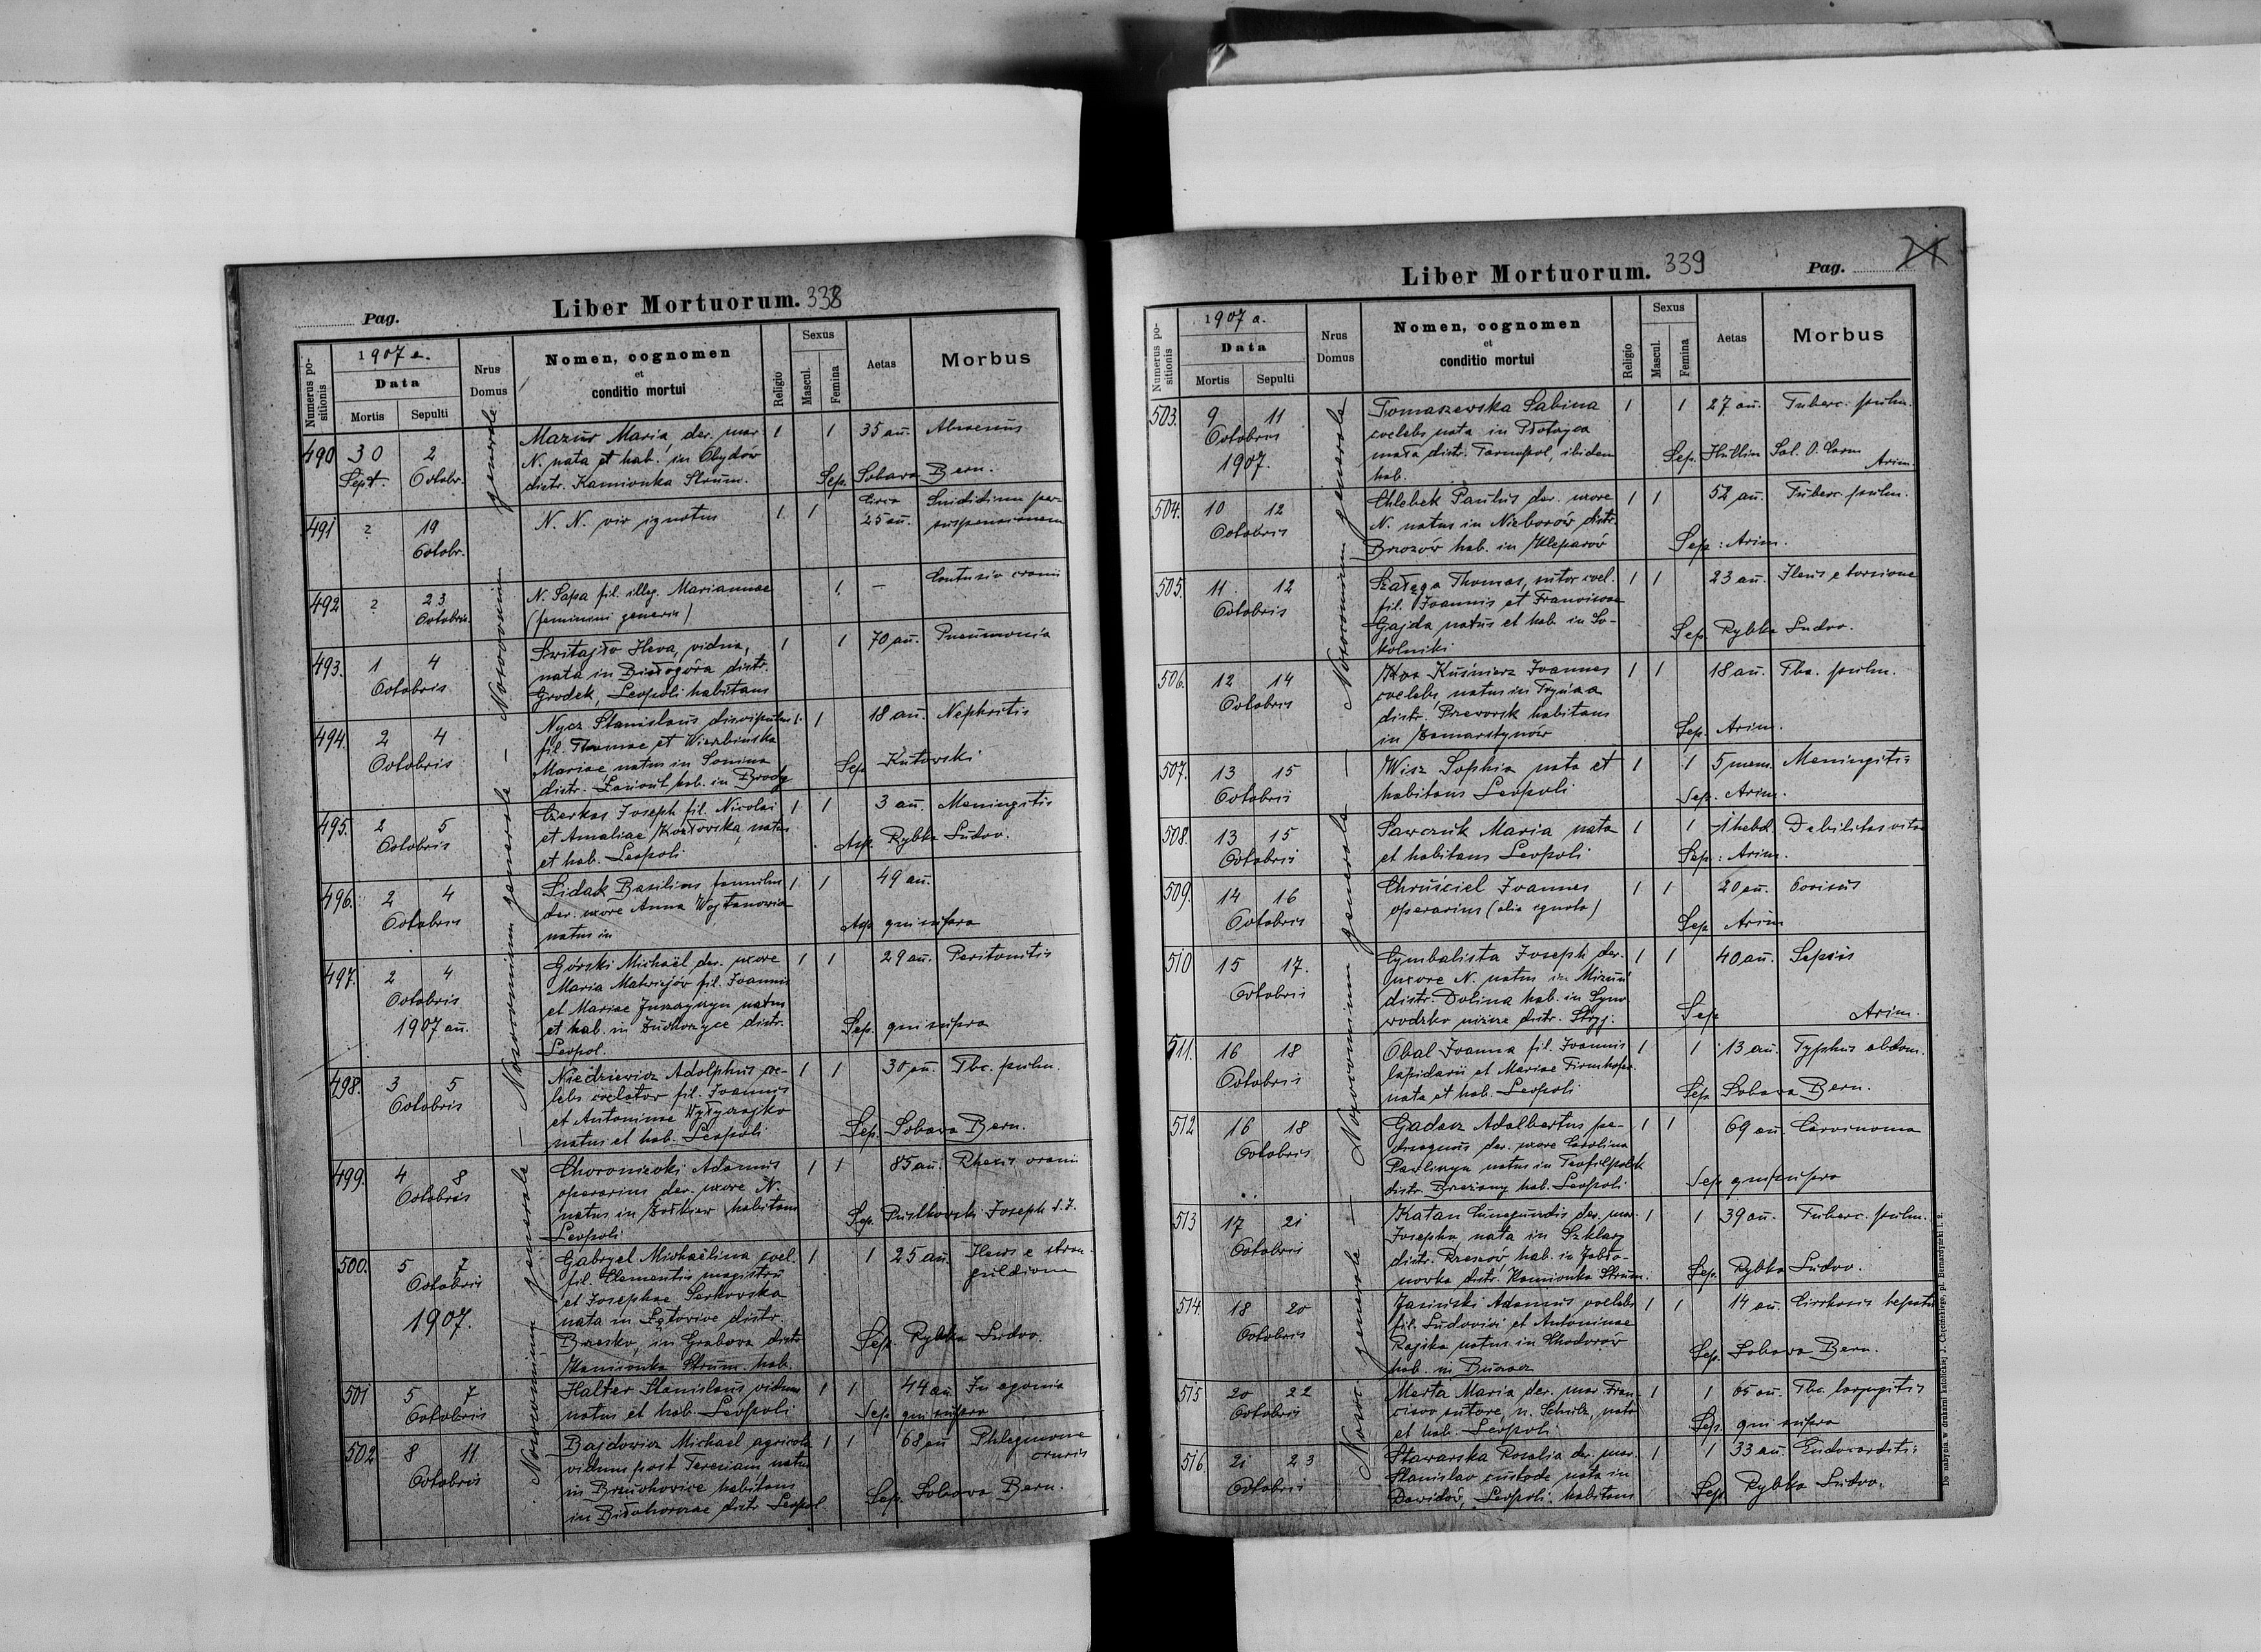 Pag.
Liber Mortuorum. 338
Numerus positionis
1907 a.
Data
Mortis
Sepulti
Nrus Domus
Nomen, cognomen
et
conditio mortui
Religio
Sexus
Mascul.
Femina
Aetas
Morbus
Nosocomium generale — Nosocomium generale — Nosocomium generale
490 30 2 Mazur Maria der. mar. 1 1 35 an. Abscensus
Sept. Octobr. N. nata et hab. in Obydów
distr. Kamionka Strum. Sep. Sobava Bern.
491 ? 19 N. N. vir ignotus 1. 1 Circa Suididium per
Octobr. 25 an. suspensionem
492 ? 23 N. Sapa fil. illeg. Mariannae 1. — Contusio cranii
Octobris (feminini generis)
493. 1 4 Switajło Heva, vidua, 1 1 70 an. Pneumonia
Octobris nata in Białogóra distr.
Grodek, Leopoli habitans
494. 2 4 Nycz Stanislaus discipulus 1. 1 18 an. Nephritis
Octobris fil. Thomae et Wierzbinska
Mariae natus in Sonina Sep. Kutowski
distr. Łańcut hab. in Brody
495. 2 5 Czerkas Joseph fil. Nicolai 1 1 3 an. Meningitis
Octobris et Amaliae Kozłovska, natus
et hab. Leopoli Asp. Rybka Ludov.
496. 2 4 Sidak Basilius famulus 1. 1 49 an.
Octobris der. uxore Anna Wojtanowia
natus in Asp. qui supra
497. 2 4 Górski Michaël der. uxore 1 1 29 an. Peritonitis
Octobris Maria Matwiejów fil. Joannis
1907 an. et Mariae natus
et hab. in distr. Sep. qui supra
Leopol.
498. 3 5 Niedziewicz Adolphus coe- 1 1 30 an. Tbc. pulm.
Octobris lebs fil. Joannis
et Antoninae
natus et hab. Leopoli Sep. Sobava Bern.
499. 4 8 Choroniecki Adamus 1 1 85 an. Rhexis cranii
Octobris operarius der. uxore N.
natus in Żołkiew habitans Sep. Pustkowski Joseph S. J.
Leopoli
500. 5 7 Gabryel Michaëlina coel. 1 1 25 an. Ileus e stran-
Octobris fil. Clementis magistri gulatione
1907. et Josephae Serkovska
nata in Łętovice distr.
Brzesko, in Grabova distr. Sep. Rybka Ludov.
Kamionka Strum. hab.
501 5 7 Halter Stanislaus viduus 1 1 44 an. In agonia
Octobris natus et hab. Leopoli Sep. qui supra
502 8 11 Bajdowicz Michael agricola 1 1 68 an Phlegmone
Octobris viduus post Teresiam natus cruris
in Brzuchovice habitans
in distr. Leopol. Sep. Sobava Bern.
Liber Mortuorum. 339
Pag.
Numerus positionis
1907 a.
Data
Mortis
Sepulti
Nrus Domus
Nomen, cognomen
et
conditio mortui
Religio
Sexus
Mascul.
Femina
Aetas
Morbus
Nosoc. generale — Nosocomium generale — Nosocomium generale
503. 9 11 Tomaszewska Sabina 1 1 27 an. Tuberc. pulm.
Octobris coelebs nata in Płotycza
1907. mała distr. Tarnopol, ibidem Sep. Hüttlin Sal. O. Carm
hab. Arim.
504. 10 12 Chlebek Paulus der. uxore 1 1 52 an. Tuberc. pulm.
Octobris N. natus in Nieborów distr.
Brzozów hab. in Kleparów Sep: Arim.
505. 11 12 Szałęga Thomas, sutor coel. 1 1 23 an. Ileus e torsione
Octobris fil. Joannis et Franciscae
Gajda natus et hab in So- Sep. Rybka Ludov.
kolniki
506. 12 14 Kuśnierz Joannes 1 1 18 an. Tbc. pulm.
Octobris coelebs, natus in Tryńca
distr. Przevorsk habitans
in Zamarstynów Sep. Arim.
507. 13 15 Wisz Sophia nata et 1 1 5 mens. Meningitis
Octobris habitans Leopoli Sep. Arim.
508. 13 15 Sawczuk Maria nata 1 1 1 hebd. Debilitas vitae
Octobris et habitans Leopoli Sep: Arim.
509. 14 16 Chruściel Joannes 1 1 20 an.
Octobris operarius (alia ignota) Sep Arim
510 15 17. Cymbalista Joseph der. 1 1 40 an. Sepsis
Octobris uxore N. natus in Mizuń
distr. Dolina hab. in Syno- Sep Arim.
wodzko niżne distr. Stryj.
511. 16 18 Obal Joanna fil. Joannis 1 1 13 an. Typhus abdom.
Octobris lapidarii et Mariae
nata et hab. Leopoli Sep. Sobava Bern.
512 16 18 Gadacz Adalbertus 1 1 69 an. Carcinoma
Octobris der. uxore Carolina
natus in Teofilpolsk
distr. Brzeżany hab. Leopoli Sep qui supra
513 17 21 Katan Cunegundis der. mar. 1 1 39 an. Tuberc. pulm.
Octobris Josepho, nata in Szklary
distr. Rzeszów, hab. in Jabło-
novka distr. Kamionka Strum. Sep. Rybka Ludov.
514 18 20 Jasiński Adamus coelebs 1 1 14 an. Cirrhosis hepatis
Octobris fil. Ludovici et Antoninae
Rajska natus in Chodorów
hab. in Buczacz Sep. Sobava Bern.
515 20 22 Merta Maria der. mar. Fran- 1 1 65 an. Tbc. laryngitis
Octobris cisco sutore, n. Schulz, nata
et hab. Leopoli Sep. qui supra
516. 21 23 Stawarska Rosalia der. mar. 1 1 33 an. Endocarditis
Octobris Stanislao custode nata in
Dawidów, Leopoli habitans Sep. Rybka Ludov.
Do nabycia w drukarni katolickiej J. Chęcińskiego, pl. Bernardyński l. 2.